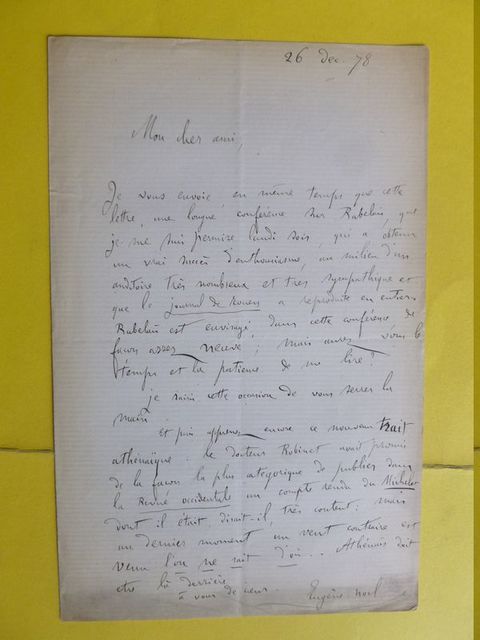 26 dec. 78
Mon cher ami,
Je vous envoie, en même temps que cette
lettre, une longue conférence sur Rabelais, que
je me suis permise lundi soir, qui a obtenu
un vrai succès d'enthousiasme, au milieu d'un
auditoire très nombreux et très sympathique et
que le journal de Rouen a reproduite en entier.
Rabelais est envisagé, dans cette conférence de
façon assez neuve ; mais aurez vous le
temps et la patience de me lire ?
je saisis cette occasion de vous serrer la
main.
Et puis apprenez encore ce nouveau trait
athénaïque. Le docteur Robinet m'avait promis
de la façon la plus catégorique de publier dans
la Revue occidentale un compte rendu du Michelet
dont il était disait-il, très content : mais
au dernier moment un vent contraire est
venu l'on ne sait d'où... Athénaïs doit
etre là derrière.
à vous de coeur. Eugène Noel